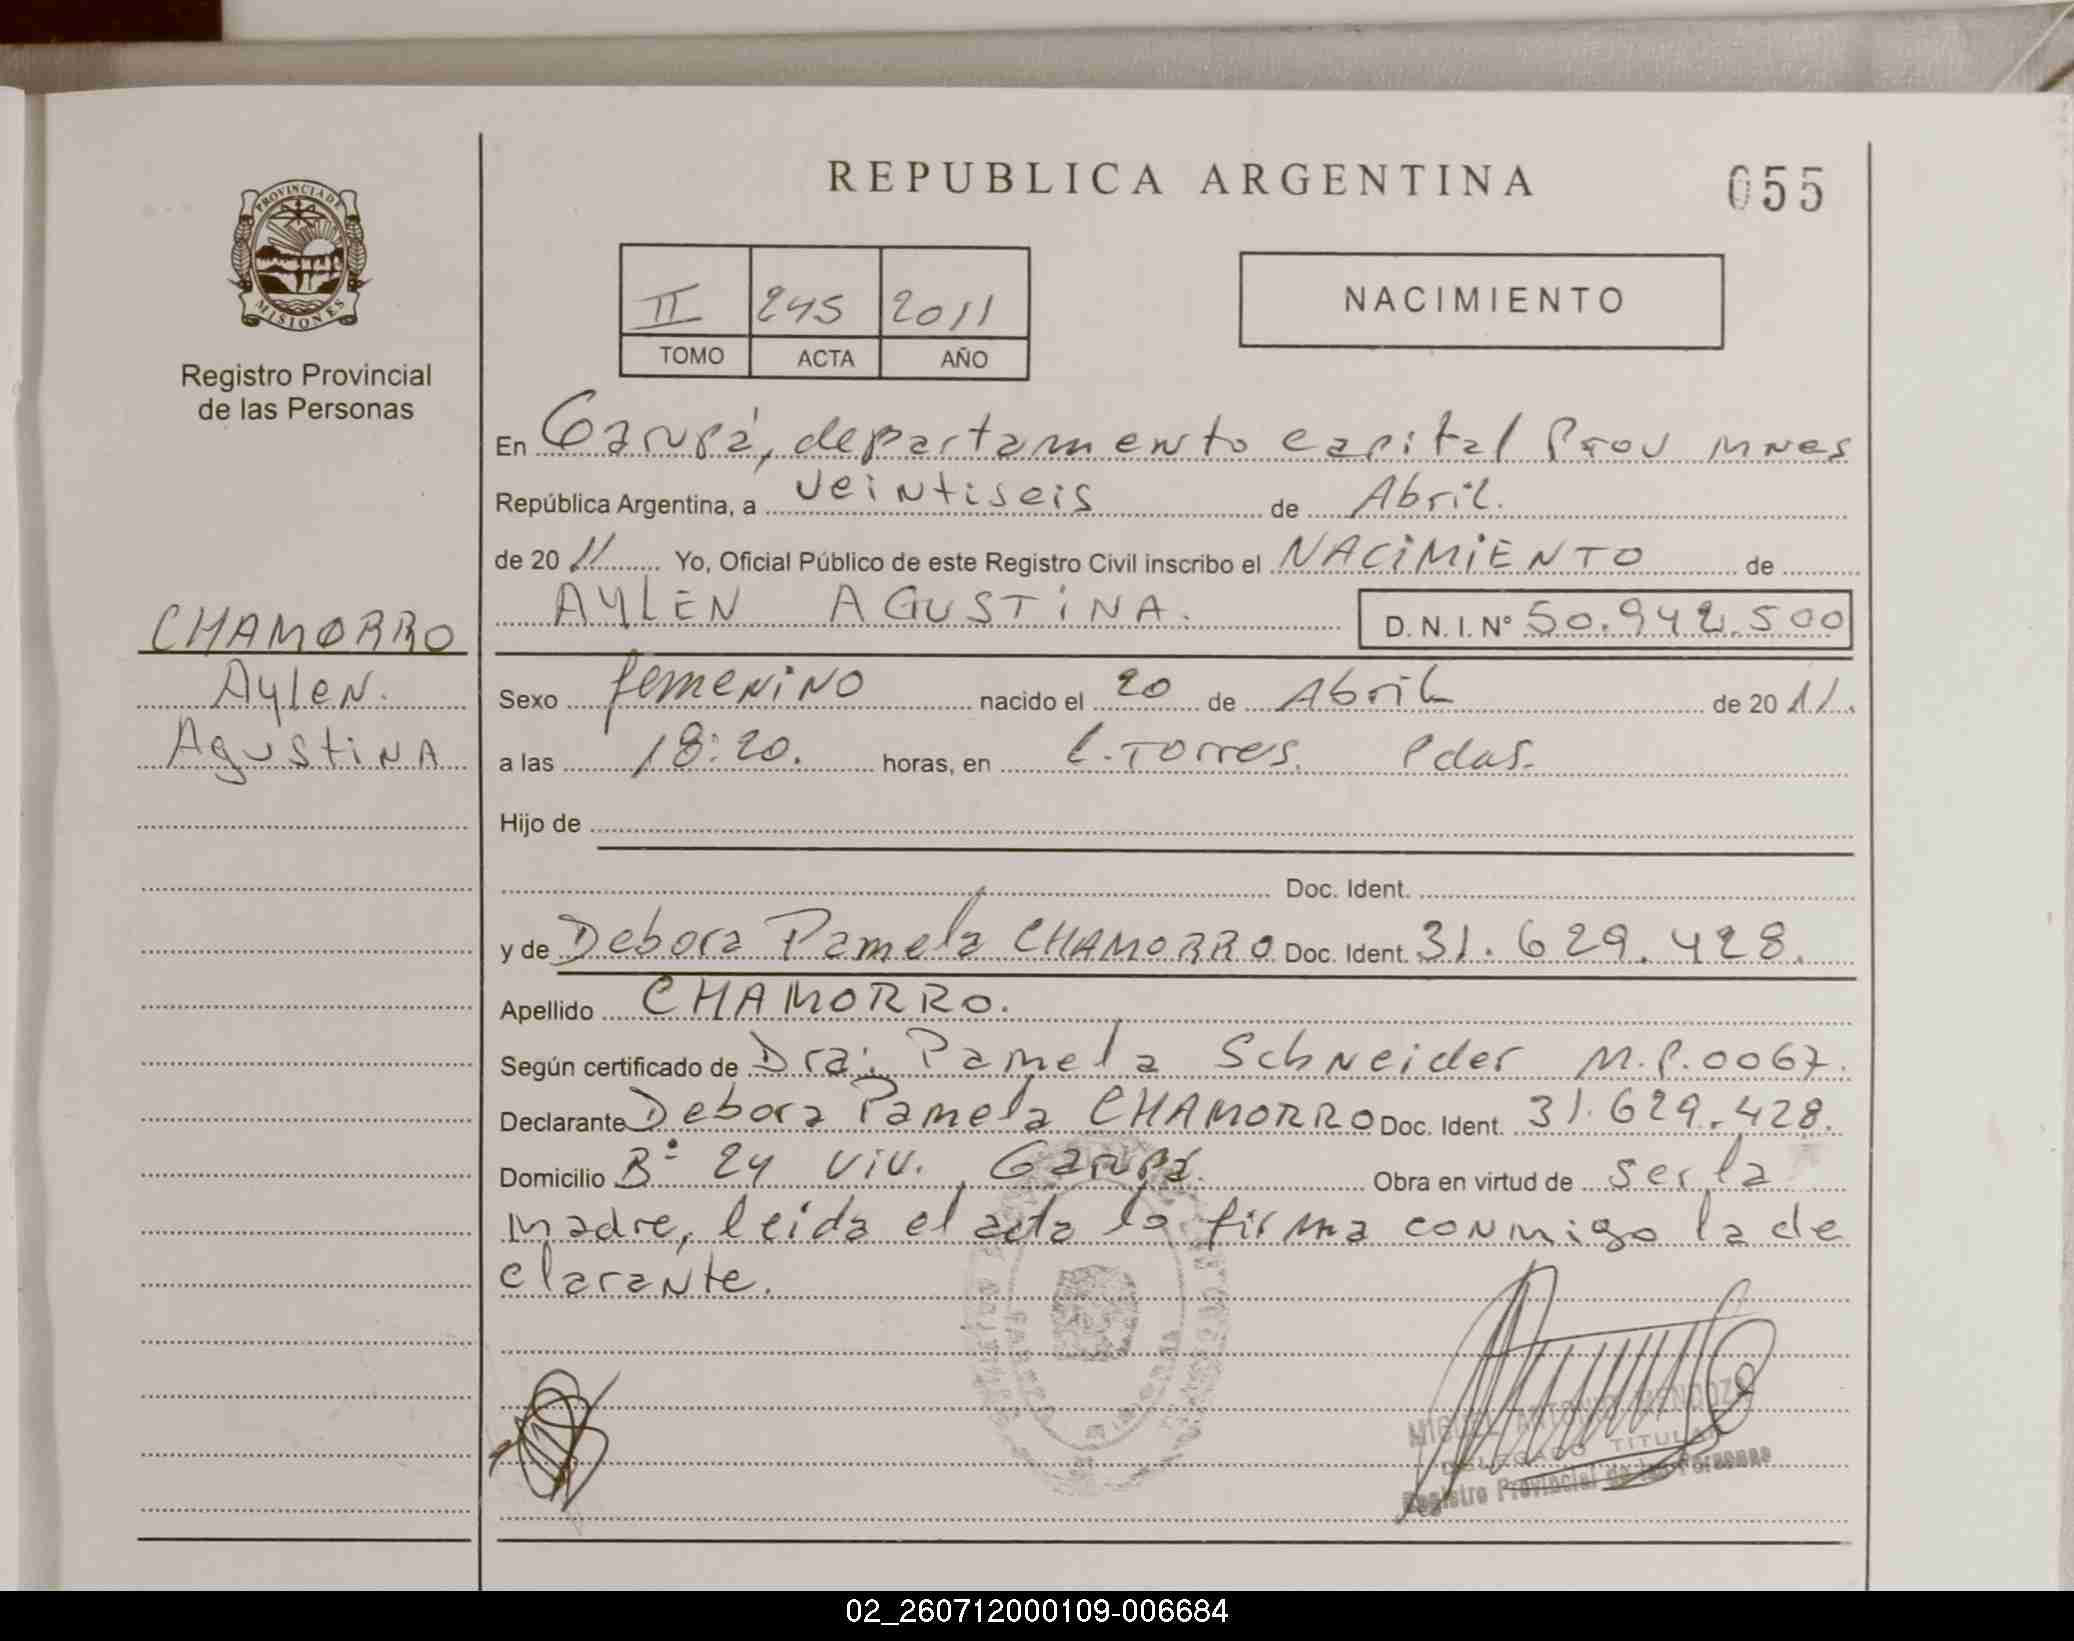 REPUBLICA ARGENTINA
055
PROVINCIA DE
MISIONES
Registro Provincial
de las Personas
II 245 2011
TOMO ACTA AÑO
NACIMIENTO
En Garupá, departamento capital Prov mnes
República Argentina, a veintiseis de Abril.
de 20 11 Yo, Oficial Público de este Registro Civil inscribo el NACIMIENTO de
AYLEN AGUSTINA. D. N. I. N° 50.942.500
CHAMORRO
Aylen.
Agustina
Sexo femenino nacido el 20 de Abril de 20 11.
a las 18:20. horas, en C. Torres. Pdas.
Hijo de
Doc. Ident.
y de Debora Pamela CHAMORRO Doc. Ident. 31.629.428.
Apellido CHAMORRO.
Según certificado de Dra: Pamela Schneider M.P.0067.
Declarante Debora Pamela CHAMORRO Doc. Ident. 31.629.428.
Domicilio B° 24 viv. Garupá. Obra en virtud de ser la
madre, leida el acta lo firma conmigo la de
clarante.
MIGUEL ANTONIO MENDOZA
DELEGADO TITULAR
Registro Provincial de las Personas
02_260712000109-006684